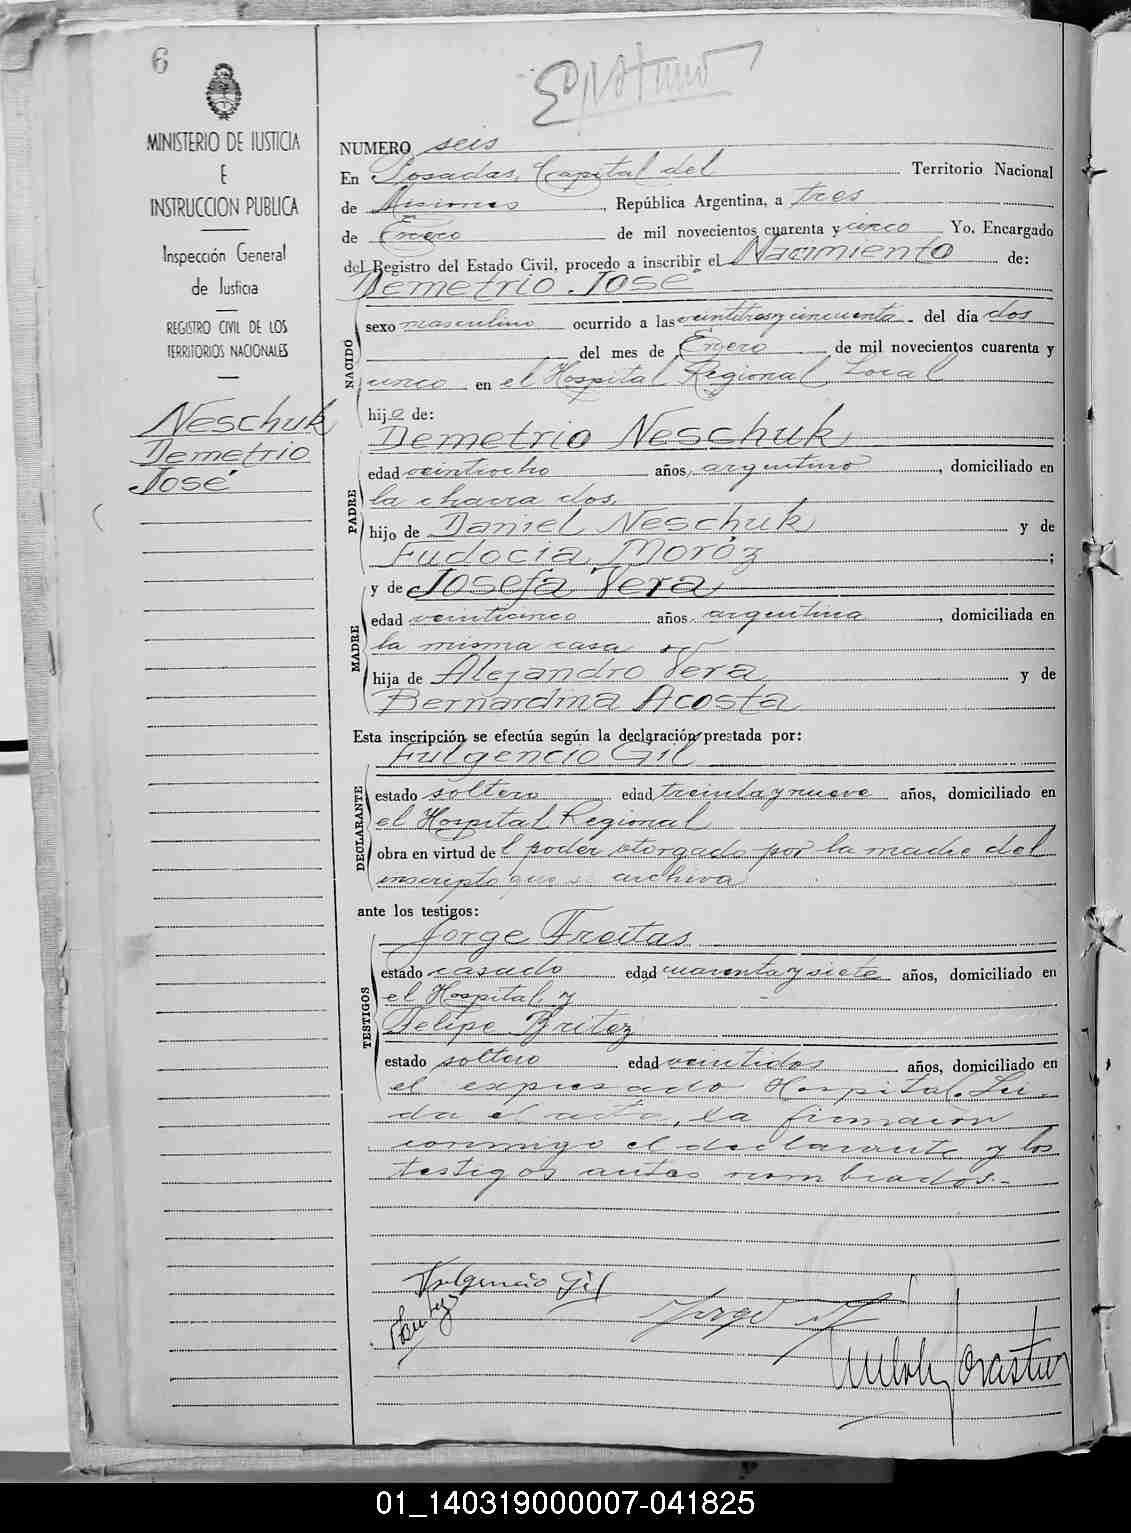 6
MINISTERIO DE JUSTICIA
E
INSTRUCCION PUBLICA
Inspección General
de Justicia
REGISTRO CIVIL DE LOS
TERRITORIOS NACIONALES
Neschuk
Demetrio
José
NUMERO seis
En Posadas, Capital del Territorio Nacional
de Misiones, República Argentina, a tres
de Enero de mil novecientos cuarenta y cinco Yo, Encargado
del Registro del Estado Civil, procedo a inscribir el Nacimiento de:
Demetrio José
NACIDO
sexo masculino ocurrido a las veintitres y cincuenta del día dos
del mes de Enero de mil novecientos cuarenta y
cinco en el Hospital Regional Local
hijo de:
Demetrio Neschuk
PADRE
edad veintiocho años, argentino, domiciliado en
la chacra dos,
hijo de Daniel Neschuk y de
Eudocia Moróz;
y de Josefa Vera
MADRE
edad veinticinco años, argentina, domiciliada en
la misma casa
hija de Alejandro Vera y de
Bernardina Acosta
Esta inscripción se efectúa según la declaración prestada por:
Fulgencio Gil
DECLARANTE
estado soltero edad treinta y nueve años, domiciliado en
el Hospital Regional
obra en virtud del poder otorgado por la madre del
inscripto que se archiva
ante los testigos:
Jorge Freitas
TESTIGOS
estado casado edad cuarenta y siete años, domiciliado en
el Hospital, y
Felipe Britez
estado soltero edad veintidos años, domiciliado en
el expresado Hospital. Leí-
da el acta, la firmaron
conmigo el declarante y los
testigos antes nombrados.-
Fulgencio Gil
FBritez
Jorge
01_140319000007-041825